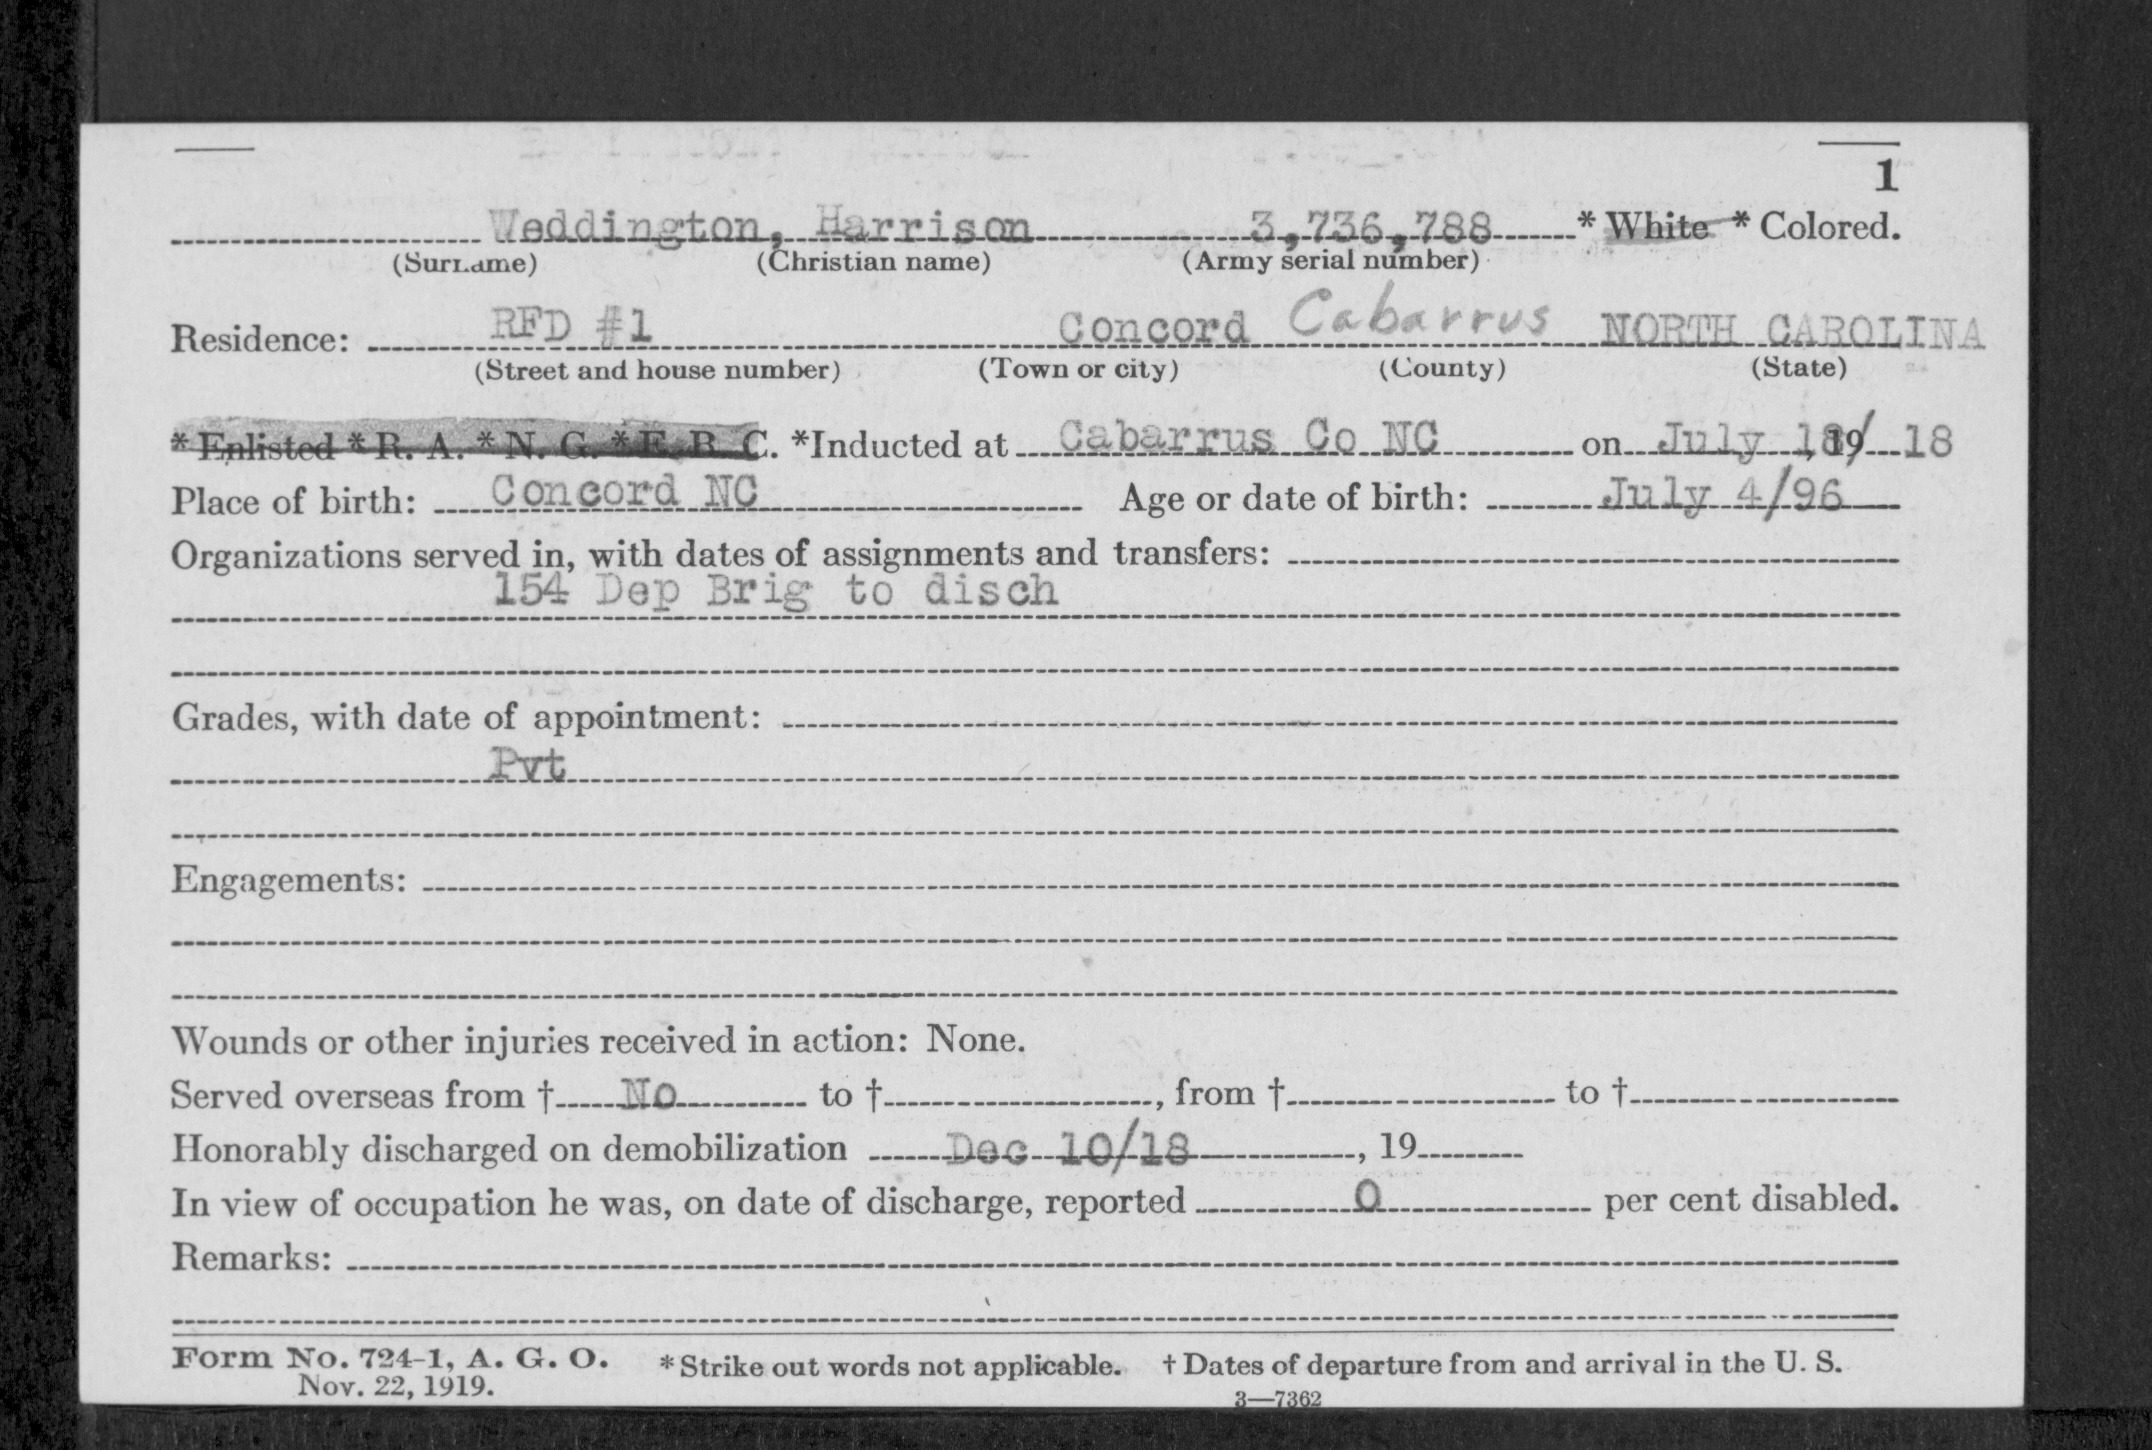 1
Weddington, Harrison 3,736,788 * White * Colored.
(Surname) (Christian name) (Army serial number)
Residence: RFD #1 Concord Cabarrus NORTH CAROLINA
(Street and house number) (Town or city) (County) (State)
* Enlisted * R. A. * N. G. * E. R. C. *Inducted at Cabarrus Co NC on July 18/, 19 18
Place of birth: Concord NC Age or date of birth: July 4/96
Organizations served in, with dates of assignments and transfers:
154 Dep Brig to disch
Grades, with date of appointment:
Pvt
Engagements:
Wounds or other injuries received in action: None.
Served overseas from † No to †, from † to †
Honorably discharged on demobilization Dec 10/18, 19
In view of occupation he was, on date of discharge, reported 0 per cent disabled.
Remarks:
Form No. 724-1, A. G. O. * Strike out words not applicable. † Dates of departure from and arrival in the U. S.
Nov. 22, 1919.
3—7362